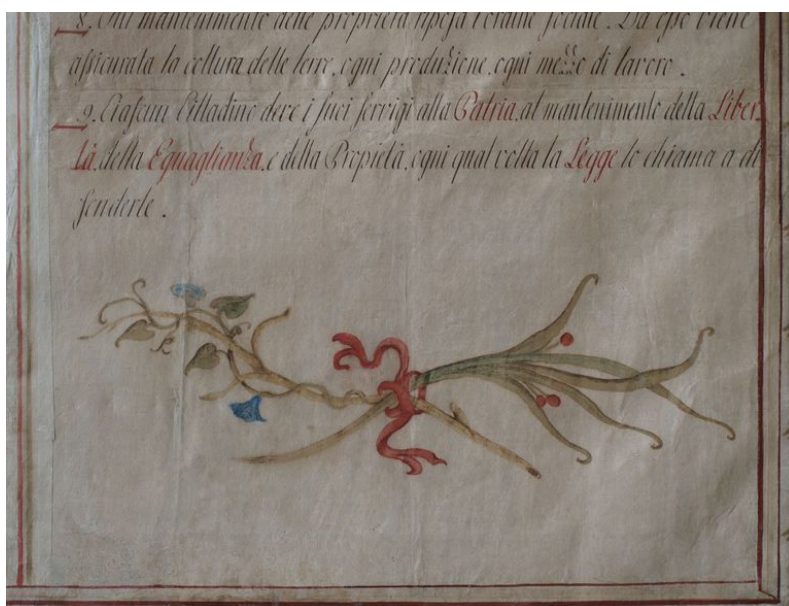 8. Sul mantenimento delle proprietà riposa l'ordine sociale. Da eſso viene
aſsicurata la coltura delle terre, ogni produzione, ogni mezzo di lavoro.
9. Ciaſcun Cittadino deve i ſuoi ſervigi alla Patria, al mantenimento della Liber-
tà, della Eguaglianza, e della Propietà, ogni qual volta la Legge lo chiama a di
fenderle.